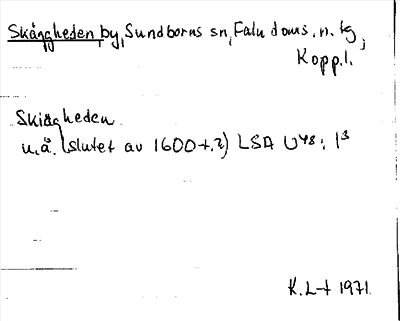 Skånggheden, by, Sundborns sn, Falu doms. n. tg,
Kopp. l.
Skiägheden
u.å. (slutet av 1600-t.?) LSA U48: 1³
K. L-t 1971.